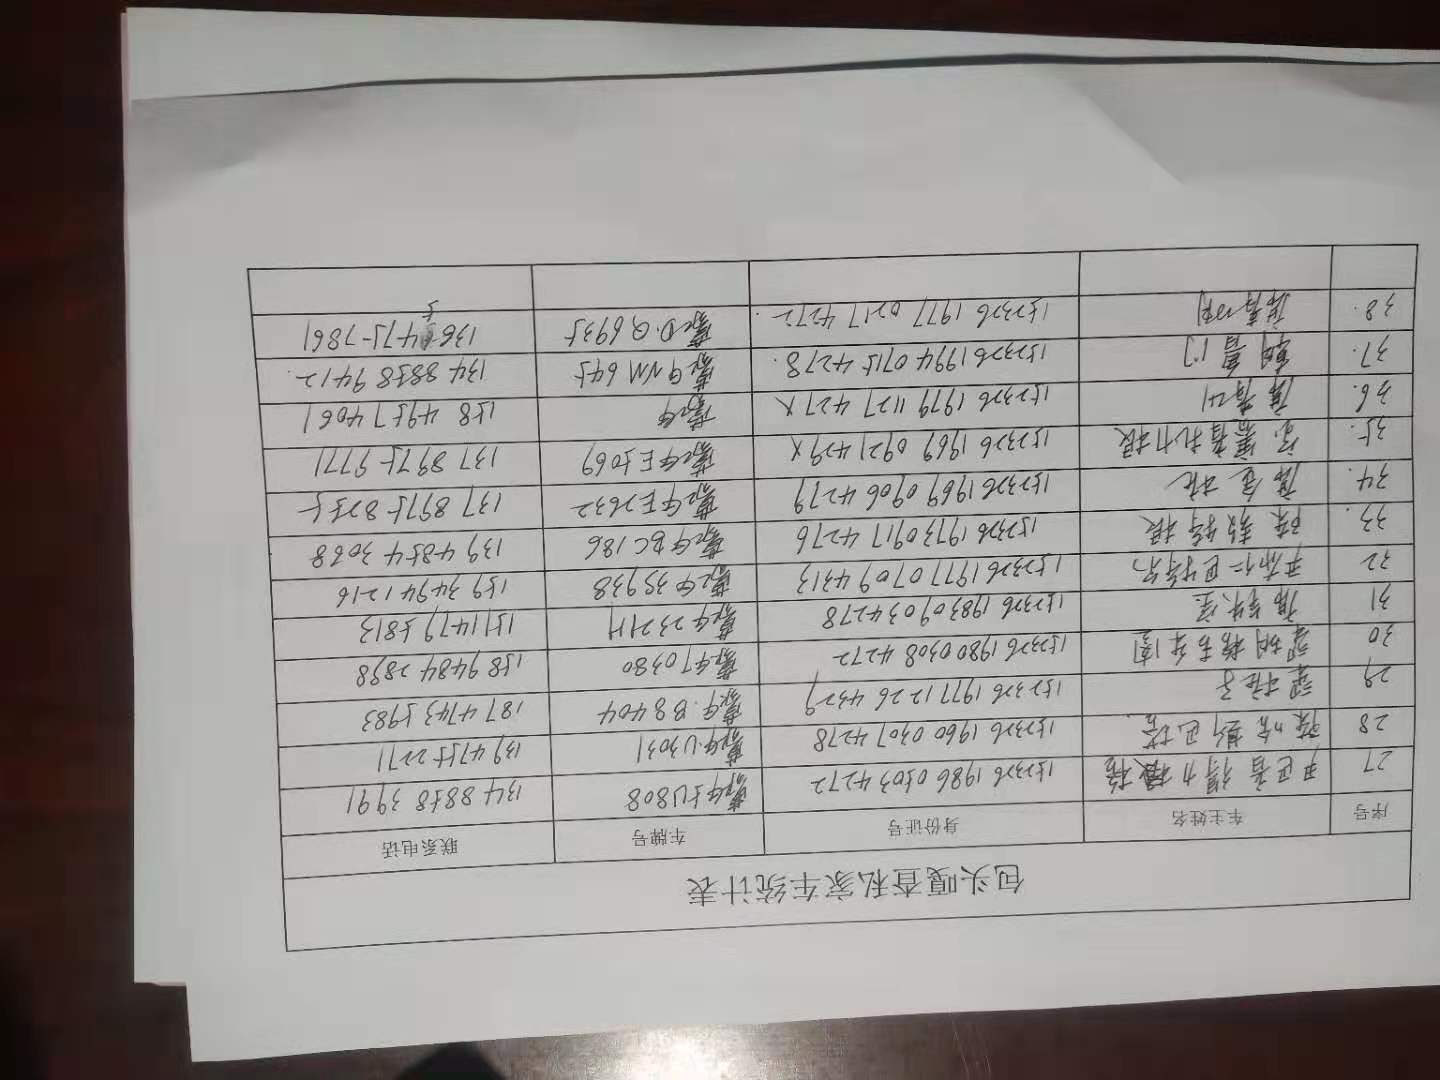 包头嘎查私家车统计表
序号 车主姓名 身份证号 车牌号 联系电话
27 152326 1986 0503 4272 蒙G5U808 134 8858 3991
28 152326 1960 0307 4278 蒙G.U3031 139 4715 2271
29 梁桩子 152326 1977 1226 4329 蒙G.B8404 187 4743 5983
30 梁胡格吉乐图 152326 1980 0308 4272 蒙GT0380 158 9484 2898
31 152326 1983 0903 4278 蒙G2321H 151 1479 5813
32 尹布仁巴特尔 152326 1977 0709 4313 蒙G35938 159 3494 1216
33. 陈敖特根 152326 1973 0917 4276 蒙GBC186 139 4854 3088
34. 152326 1969 0906 4279 蒙GE2632 137 8975 8255
35. 152326 1969 0921 429X 蒙GE5069 137 8975 9771
36. 席青山 152326 1979 1127 427X 蒙G 158 4957 4061
37. 152326 1994 0715 4278. 蒙GNM645 134 8858 9412.
38. 152326 1977 0217 4272. 蒙D.Q6935